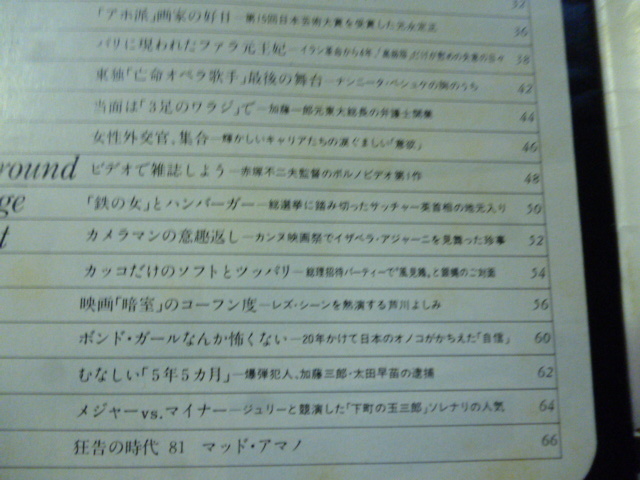 32
「アホ派」画家の好日―第15回日本芸術大賞を受賞した元永定正 36
パリに現われたファラ元王妃―イラン革命から4年、 38
東独「亡命オペラ歌手」最後の舞台 42
当面は「3足のワラジ」で―加藤一郎元東大総長の弁護士開業 44
女性外交官、集合―輝かしいキャリアたちの涙ぐましい「意欲」 46
round ビデオで雑誌しよう―赤塚不二夫監督のポルノビデオ第1作 48
ge 「鉄の女」とハンバーガー―総選挙に踏み切ったサッチャー英首相の地元入り 50
t カメラマンの意趣返し―カンヌ映画祭でイザベラ・アジャーニを見舞った珍事 52
カッコだけのソフトとツッパリ―総理招待パーティーで"風見鶏"と銀蝿のご対面 54
映画「暗室」のコーフン度―レズ・シーンを熱演する芦川よしみ 56
ボンド・ガールなんか怖くない―20年かけて日本のオノコがかちえた「自信」 60
むなしい「5年5カ月」―爆弾犯人、加藤三郎・太田早苗の逮捕 62
メジャーvs.マイナー―ジュリーと競演した「下町の玉三郎」ソレナリの人気 64
狂告の時代 81 マッド・アマノ 66